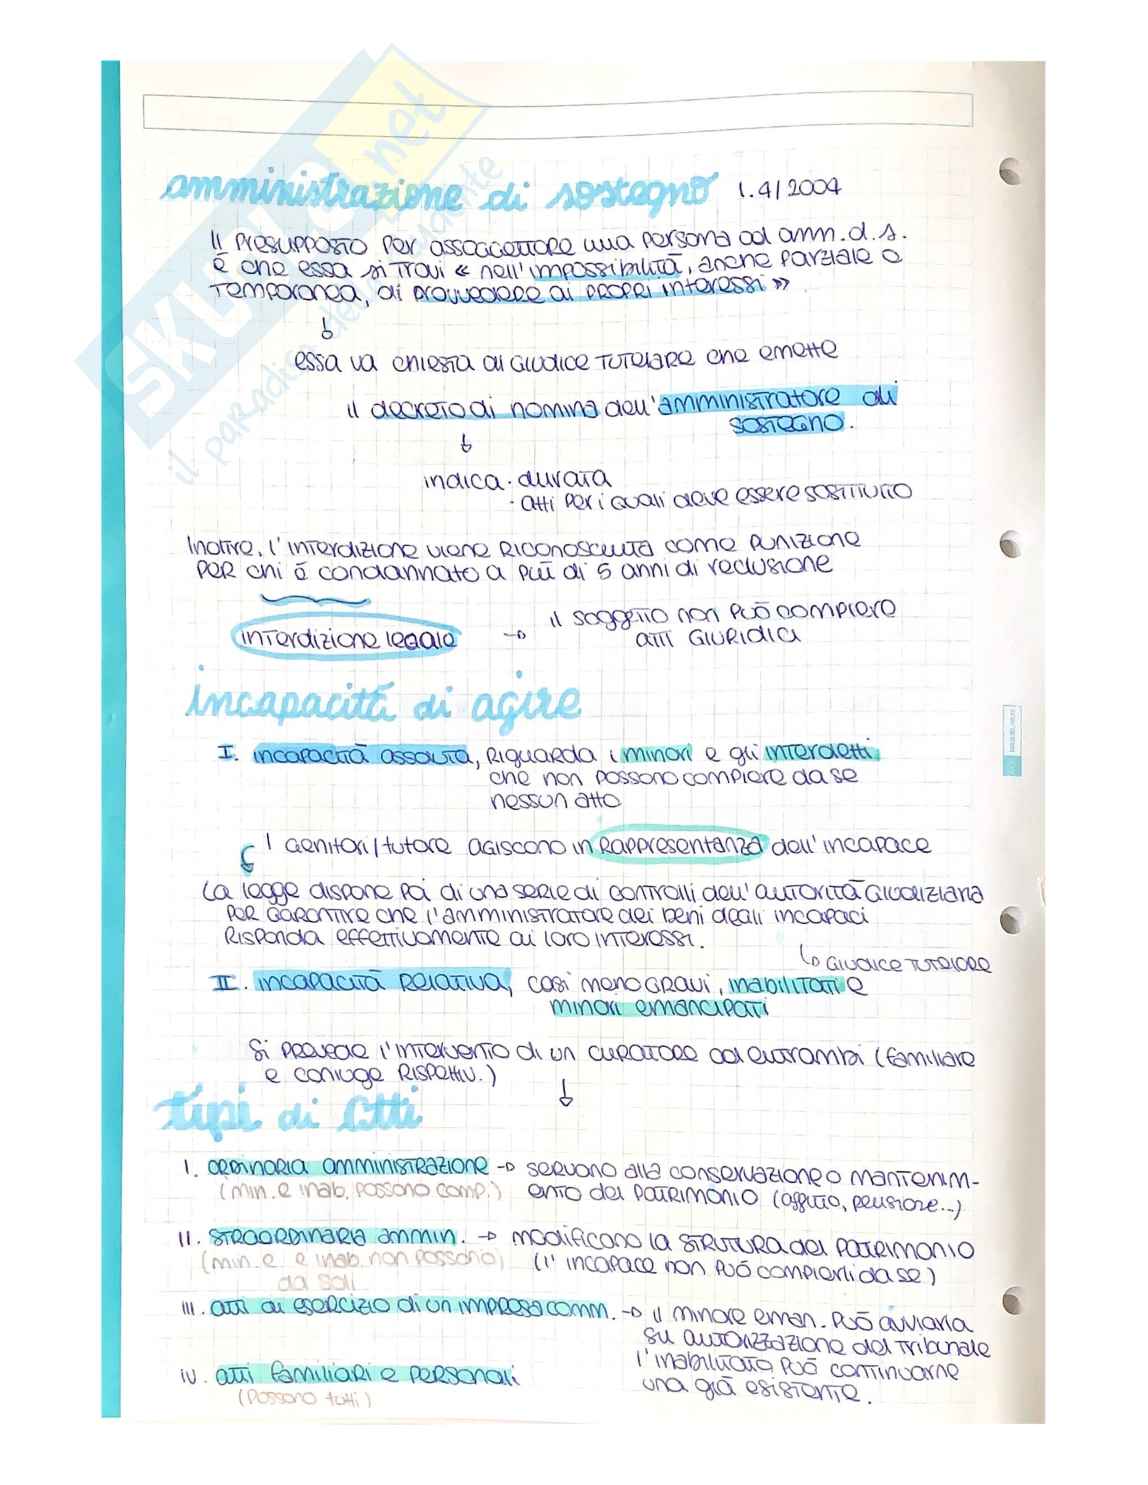 SKUOLA.net
il paradiso dello studente
amministrazione di sostegno l.4/2004
Il presupposto per assoggettare una persona ad amm.d.s.
è che essa si trovi « nell'impossibilità, anche parziale o
temporanea, di provvedere ai propri interessi »
essa va chiesta al giudice tutelare che emette
il decreto di nomina dell'amministratore di
sostegno.
indica · durata
· atti per i quali deve essere sostituito
Inoltre, l'interdizione viene riconosciuta come punizione
per chi è condannato a più di 5 anni di reclusione
interdizione legale → il soggetto non può compiere
atti giuridici
incapacità di agire
I. incapacità assoluta, riguarda i minori e gli interdetti
che non possono compiere da se
nessun atto
I genitori/tutore agiscono in rappresentanza dell'incapace
La legge dispone poi di una serie di controlli dell'autorità giudiziaria
per garantire che l'amministratore dei beni degli incapaci
risponda effettivamente ai loro interessi.
↳ giudice tutelare
II. incapacità relativa, casi meno gravi, inabilitati e
minori emancipati
Si prevede l'intervento di un curatore ad entrambi (familiare
e coniuge rispettiv.)
tipi di atti
I. ordinaria amministrazione → servono alla conservazione o mantenim-
(min.e inab. possono comp.) ento del patrimonio (affitto, pensione...)
II. straordinaria ammin. → modificano la strutura del patrimonio
(min.e. e inab. non possono (l'incapace non può compierli da se)
da soli
III. atti di esercizio di un impresa comm. → il minore eman. può avviarla
su autorizzazione del tribunale
l'inabilitato può continuarne
una già esistente.
IV. atti familiari e personali
(possono tutti)